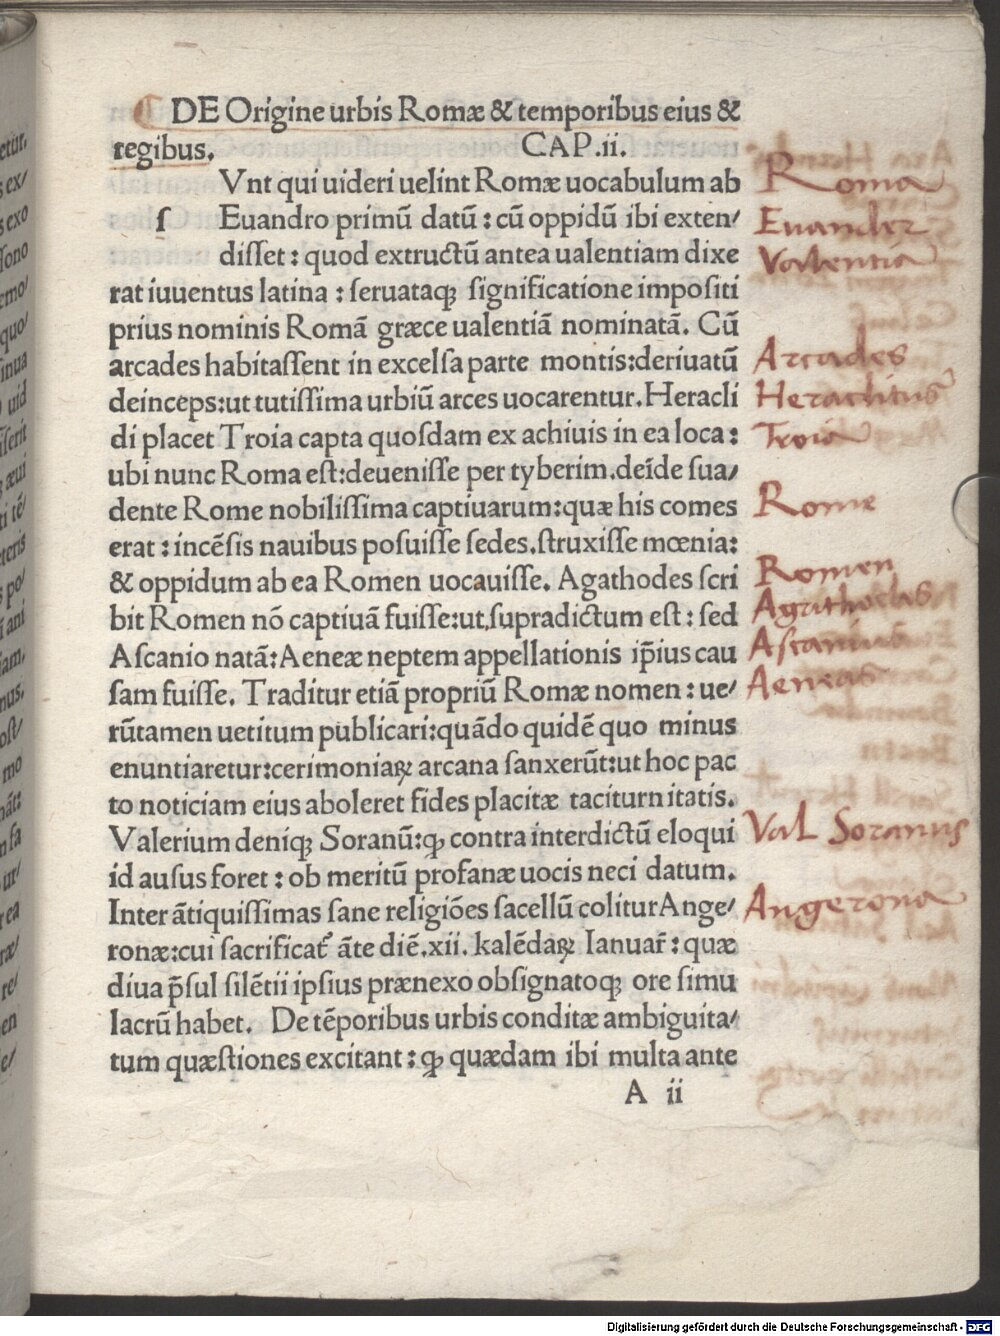 DE Origine urbis Romæ & temporibus eius &
regibus. CAP.ii.
Vnt qui uideri uelint Romæ uocabulum ab
ſ Euandro primū datū : cū oppidū ibi exten/
diſſet : quod extructū antea ualentiam dixe
rat iuuentus latina : ſeruataqꝫ ſignificatione impoſiti
prius nominis Romā græce ualentiā nominatā. Cū
arcades habitaſſent in excelſa parte montis:deriuatū
deinceps:ut tutiſſima urbiū arces uocarentur.Heracli
di placet Troia capta quoſdam ex achiuis in ea loca :
ubi nunc Roma eſt:deueniſſe per tyberim.deīde ſua/
dente Rome nobiliſſima captiuarum:quæ his comes
erat : incēſis nauibus poſuiſſe ſedes.ſtruxiſſe mœnia:
& oppidum ab ea Romen uocauiſſe. Agathodes ſcri
bit Romen nō captiuā fuiſſe:ut,ſupradictum eſt : ſed
Aſcanio natā: Aeneæ neptem appellationis ip̄ius cau
ſam fuiſſe. Traditur etiā propriū Romæ nomen : ue/
rūtamen uetitum publicari:quādo quidē quo minus
enuntiaretur:cerimoniaꝝ arcana ſanxerūt:ut hoc pac
to noticiam eius aboleret fides placitæ taciturnitatis.
Valerium deniqꝫ Soranū:qꝫ contra interdictū eloqui
id auſus foret : ob meritū profanæ uocis neci datum.
Inter ātiquiſſimas ſane religiōes ſacellū colitur Ange/
ronæ:cui ſacrificat᷑ āte diē.xii. kalēdaꝝ Ianuar̄ : quæ
diua p̄ſul ſilētii ipſius prænexo obſignatoqꝫ ore ſimu
lacrū habet. De tēporibus urbis conditæ ambiguita/
tum quæſtiones excitant : qꝫ quædam ibi multa ante
A ii
Roma
Euander
Valentia
Arcades
Heraclitus
Troia
Rome
Romen
Agathocles
Ascanius
Aeneas
Val Soranus
Angerona
Digitalisierung gefördert durch die Deutsche Forschungsgemeinschaft - DFG